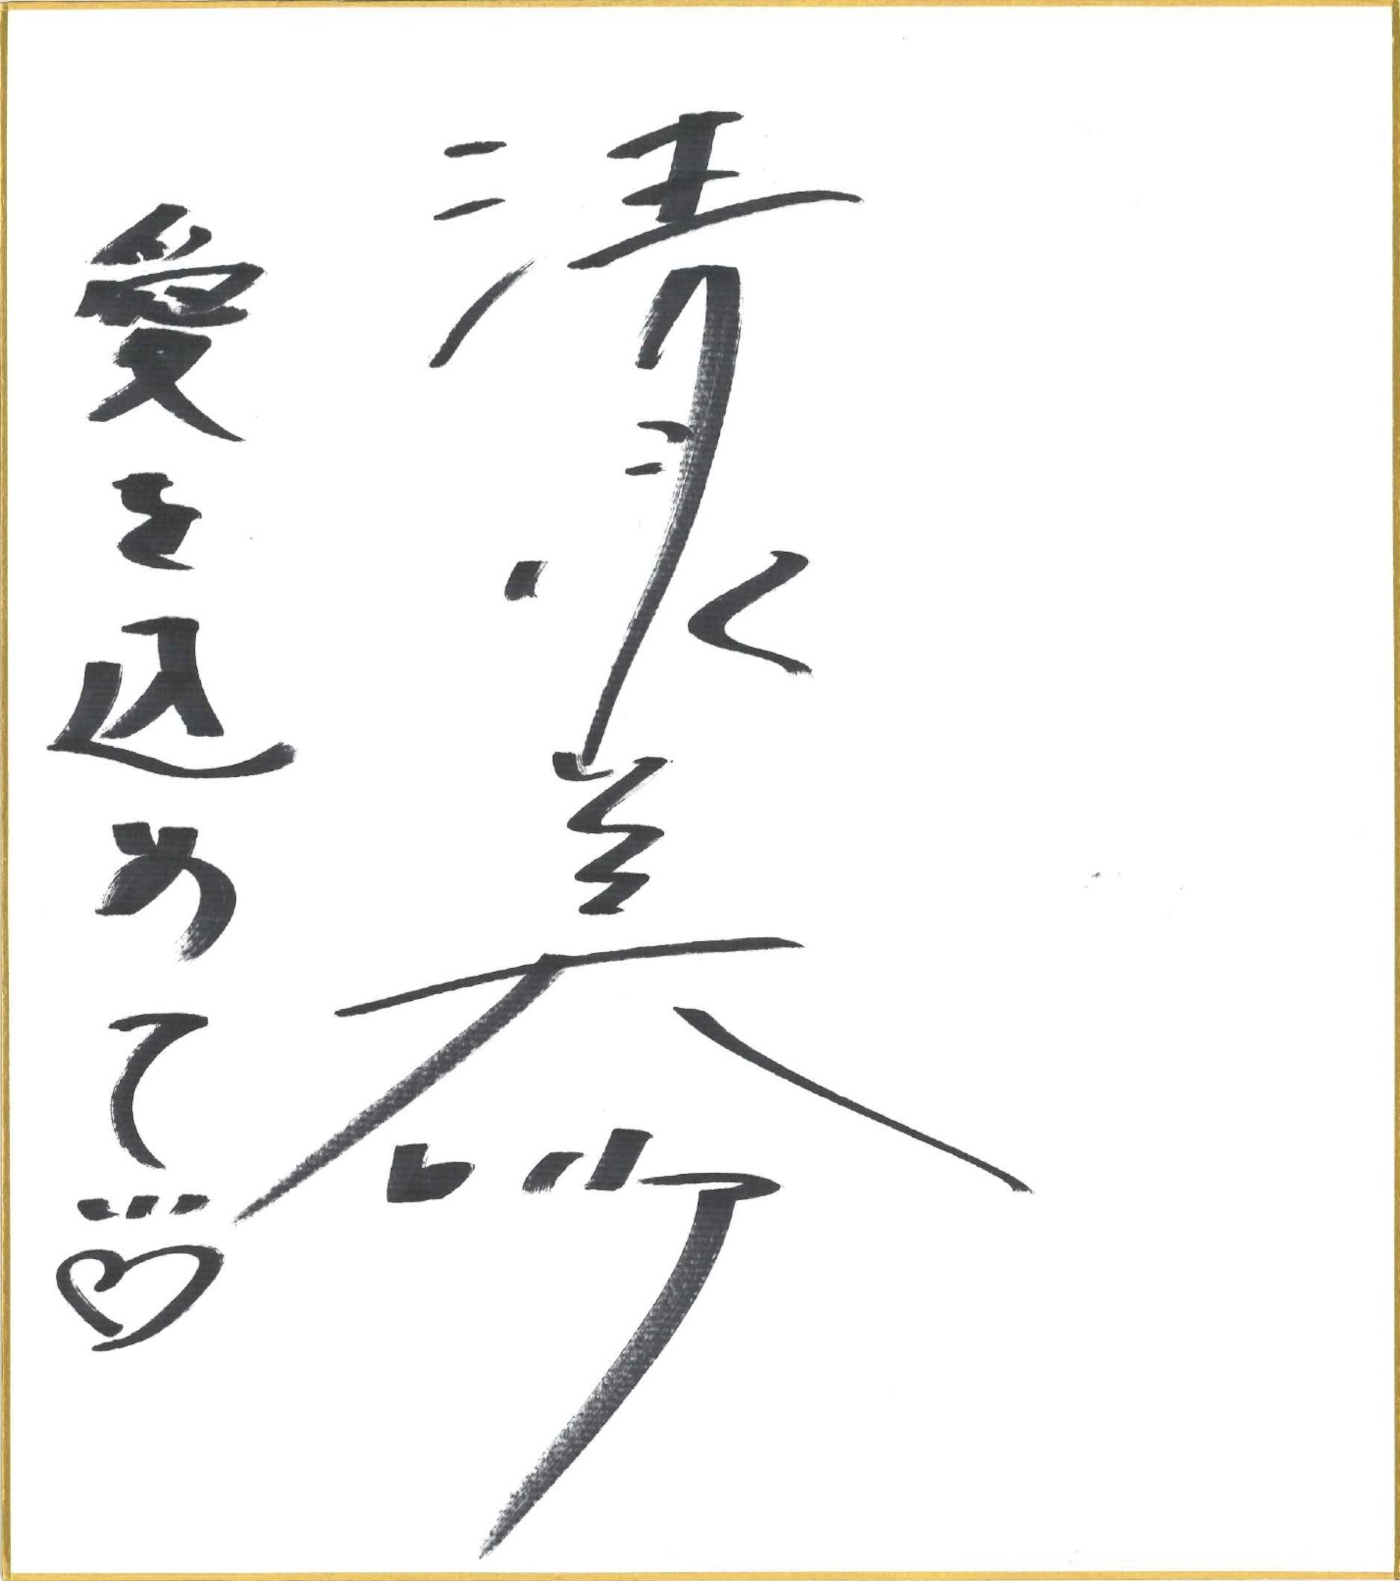 清水美砂
愛を込めて…♡